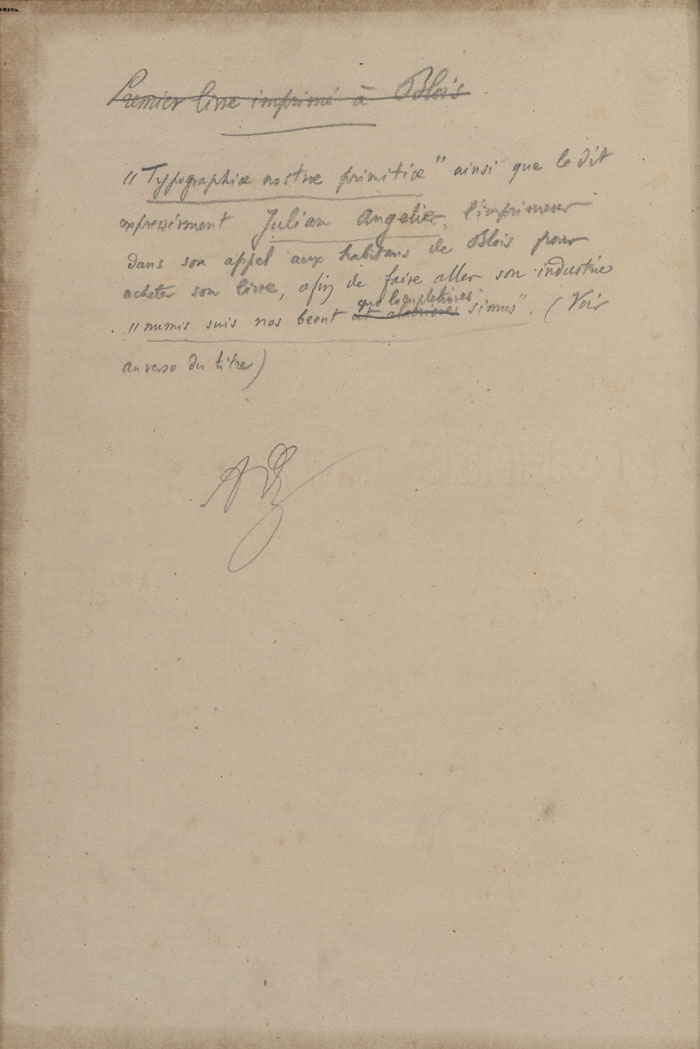 Premier livre imprimé à Blois
"Typographiæ nostræ primitiæ" ainsi que le dit
expressément Julian Angelier, l'imprimeur
dans son appel aux habitans de Blois pour
acheter son livre, afin de faire aller son industrie
que locupletiores
"numis suis nos beent simus". (Voir
au verso du titre)